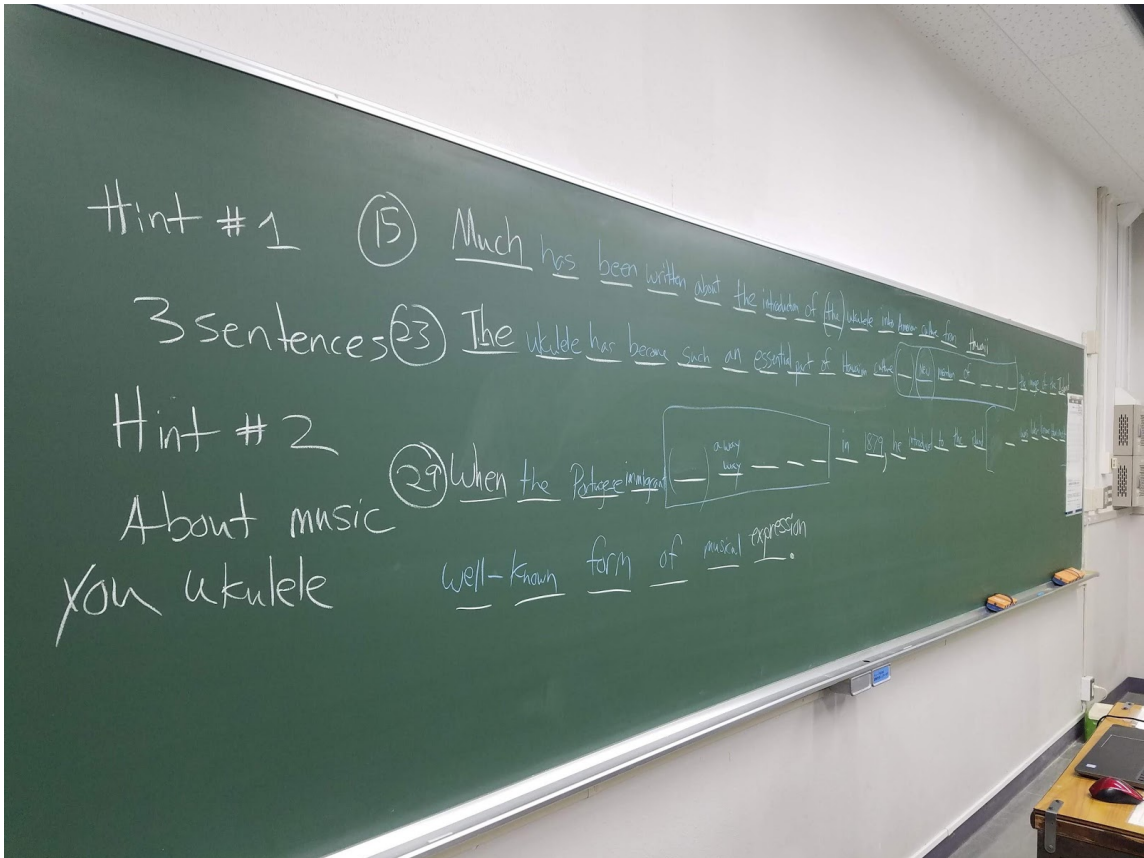 Hint #1
3 sentences
Hint #2
About music
You ukulele
(15) Much has been written about the introduction of (the) ukulele into American culture from Hawaii
(23) The ukulele has become such an essential part of Hawaiian culture _ new mention of _ _ _ _ the image of the
(29) When the Portugese immigrant _ a way way _ _ _ _ in 1879, he introduced to the
well-known form of musical expression.